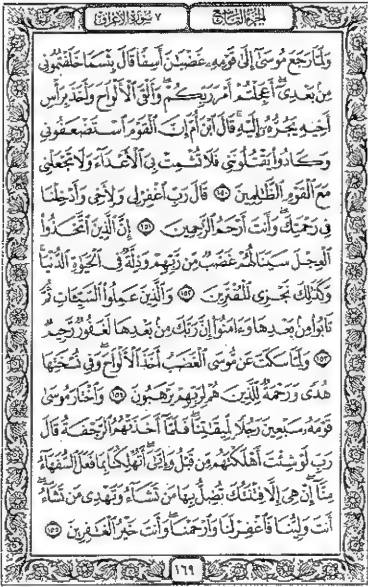 الجزء التاسع
٧ سورة الأعراف
وَلَمَّا رَجَعَ مُوسَىٰٓ إِلَىٰ قَوْمِهِۦ غَضْبَٰنَ أَسِفًا قَالَ بِئْسَمَا خَلَفْتُمُونِى
مِنۢ بَعْدِىٓ ۖ أَعَجِلْتُمْ أَمْرَ رَبِّكُمْ ۖ وَأَلْقَى ٱلْأَلْوَاحَ وَأَخَذَ بِرَأْسِ
أَخِيهِ يَجُرُّهُۥٓ إِلَيْهِ ۚ قَالَ ٱبْنَ أُمَّ إِنَّ ٱلْقَوْمَ ٱسْتَضْعَفُونِى
وَكَادُوا۟ يَقْتُلُونَنِى فَلَا تُشْمِتْ بِىَ ٱلْأَعْدَآءَ وَلَا تَجْعَلْنِى
مَعَ ٱلْقَوْمِ ٱلظَّٰلِمِينَ ١٥٠ قَالَ رَبِّ ٱغْفِرْ لِى وَلِأَخِى وَأَدْخِلْنَا
فِى رَحْمَتِكَ ۖ وَأَنتَ أَرْحَمُ ٱلرَّٰحِمِينَ ١٥١ إِنَّ ٱلَّذِينَ ٱتَّخَذُوا۟
ٱلْعِجْلَ سَيَنَالُهُمْ غَضَبٌ مِّن رَّبِّهِمْ وَذِلَّةٌ فِى ٱلْحَيَوٰةِ ٱلدُّنْيَا ۚ
وَكَذَٰلِكَ نَجْزِى ٱلْمُفْتَرِينَ ١٥٢ وَٱلَّذِينَ عَمِلُوا۟ ٱلسَّيِّـَٔاتِ ثُمَّ
تَابُوا۟ مِنۢ بَعْدِهَا وَءَامَنُوٓا۟ إِنَّ رَبَّكَ مِنۢ بَعْدِهَا لَغَفُورٌ رَّحِيمٌ
١٥٣ وَلَمَّا سَكَتَ عَن مُّوسَى ٱلْغَضَبُ أَخَذَ ٱلْأَلْوَاحَ ۖ وَفِى نُسْخَتِهَا
هُدًى وَرَحْمَةٌ لِّلَّذِينَ هُمْ لِرَبِّهِمْ يَرْهَبُونَ ١٥٤ وَٱخْتَارَ مُوسَىٰ
قَوْمَهُۥ سَبْعِينَ رَجُلًا لِّمِيقَٰتِنَا ۖ فَلَمَّآ أَخَذَتْهُمُ ٱلرَّجْفَةُ قَالَ
رَبِّ لَوْ شِئْتَ أَهْلَكْتَهُم مِّن قَبْلُ وَإِيَّٰىَ ۖ أَتُهْلِكُنَا بِمَا فَعَلَ ٱلسُّفَهَآءُ
مِنَّآ ۖ إِنْ هِىَ إِلَّا فِتْنَتُكَ تُضِلُّ بِهَا مَن تَشَآءُ وَتَهْدِى مَن تَشَآءُ ۖ
أَنتَ وَلِيُّنَا فَٱغْفِرْ لَنَا وَٱرْحَمْنَا ۖ وَأَنتَ خَيْرُ ٱلْغَٰفِرِينَ ١٥٥
١٦٩